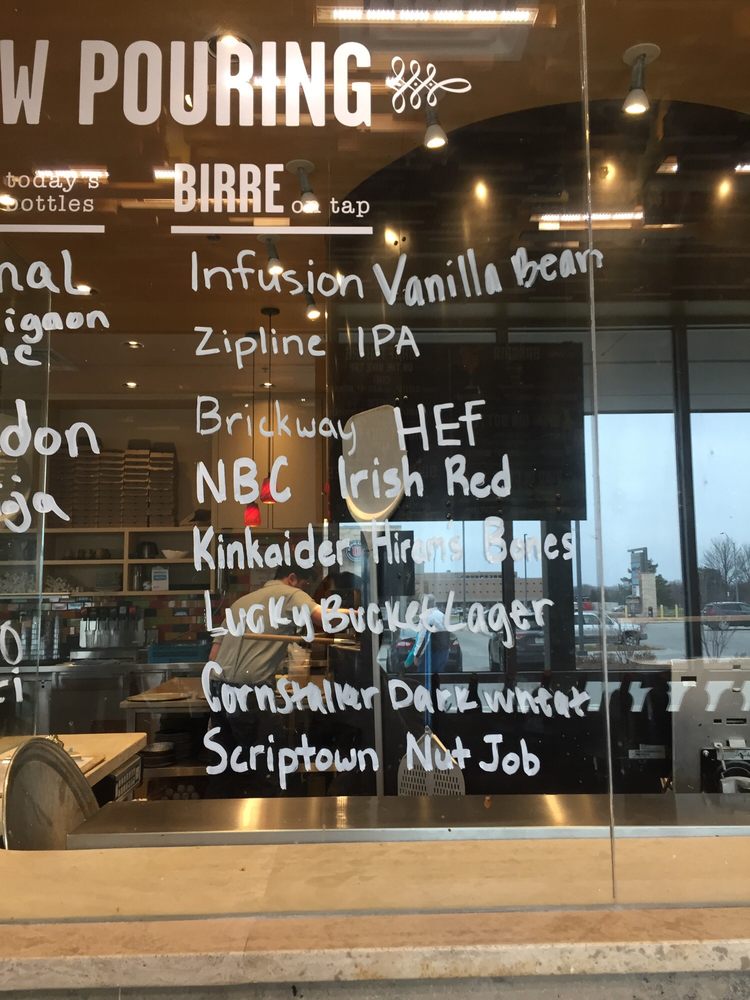 W POURING
today's
bottles
BIRRE on tap
nal
igaon
ne
don
ija
Infusion Vanilla Bean
Zipline IPA
Brickway HEF
NBC Irish Red
Kinkaider Hiram's Bones
Lucky Bucket Lager
Cornstalker Dark wheat
Scriptown Nut Job